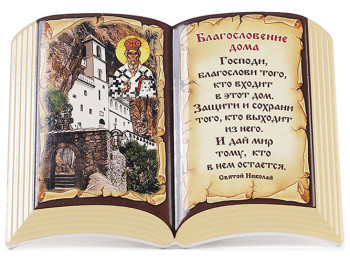 Благословение
дома
Господи,
благослови того,
кто входит
в этот дом.
Защити и сохрани
того, кто выходит
из него.
И дай мир
тому, кто
в нем остается.
Святой Николай